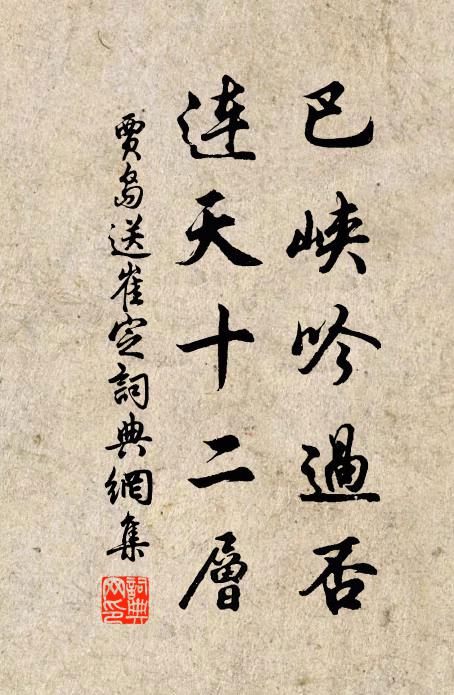 巴峽吟過否
連天十二層
賈島送崔定詞典網集
詞典網印